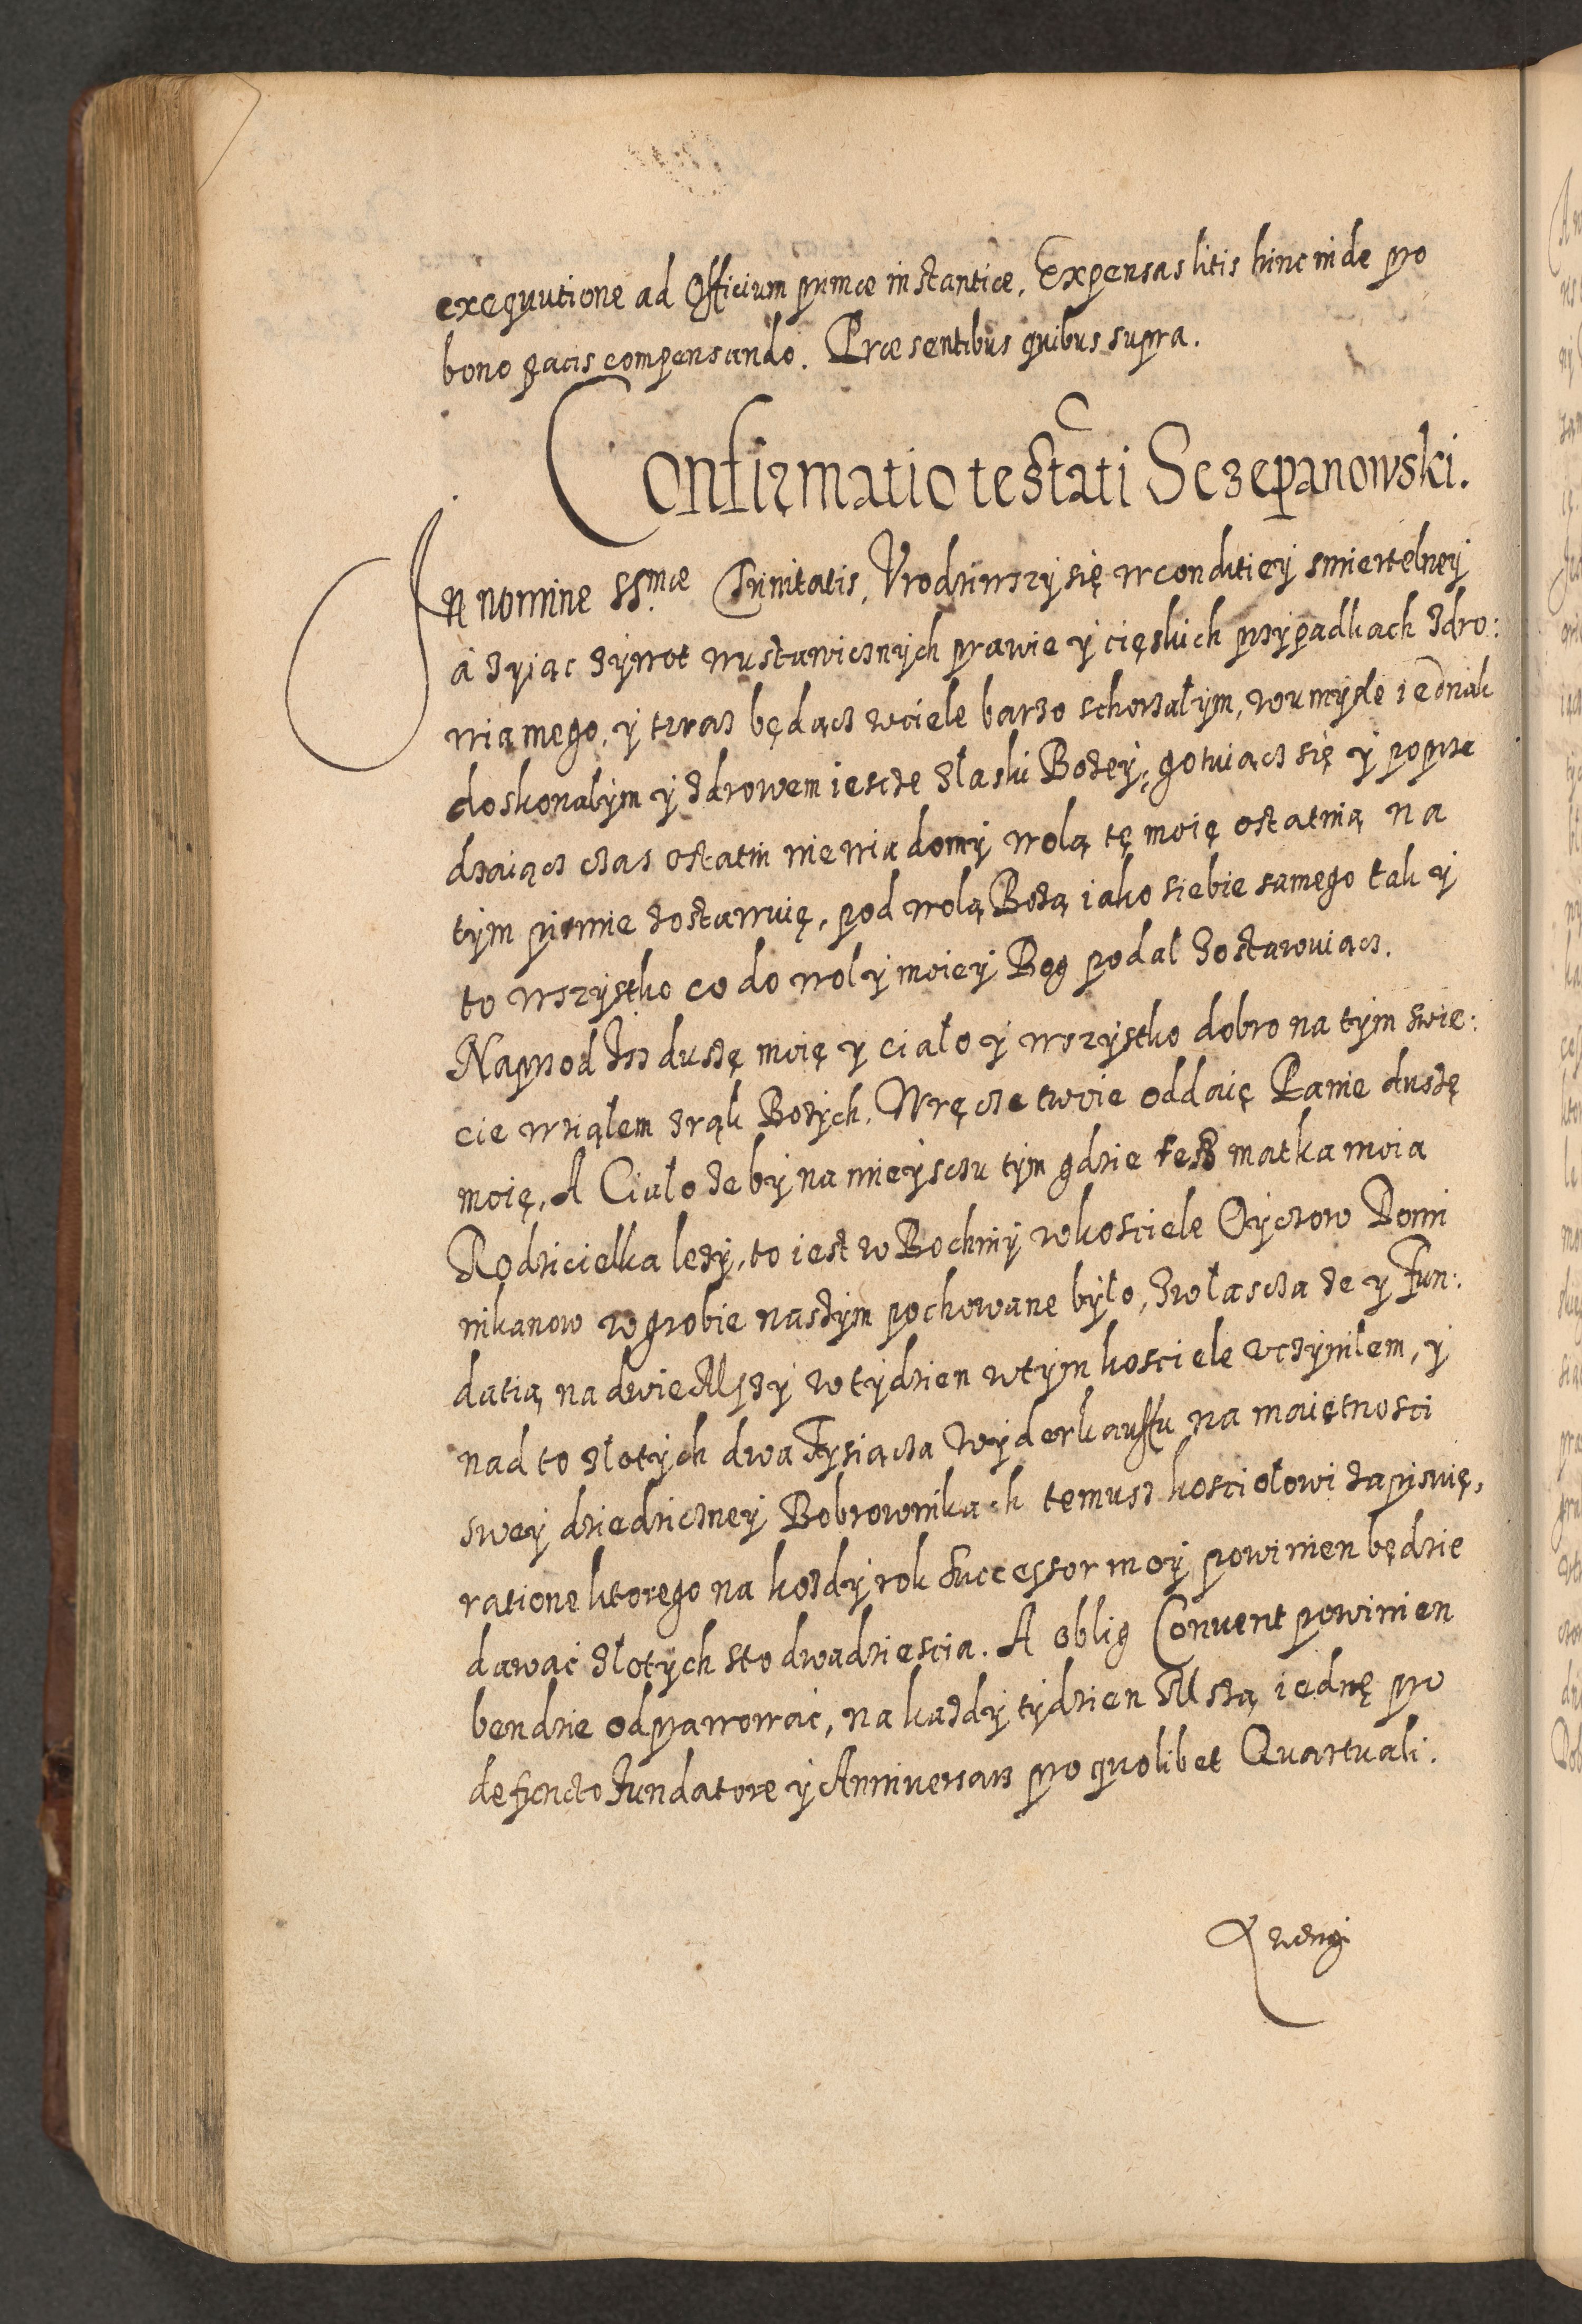 exequutione ad Officium primæ instantiæ. Expensas litis hinc inde pro
bono pacis compensando. Præsentibus quibus supra.
Confirmatio testati Sczepanowski.
In nomine SSmæ Trinitatis, Vrodziwszy się w conditiey smiertelney
à zyiąc zywot w ustawicznych prawie y cięskich przypadkach zdro:
wia mego, y teraz będącz w ciele barzo schorzałym, w umysle iednak
doskonalym y zdrowem iescze z łaski Bozey, gotuiącz się y poprze
dzaiącz czas ostatni niewiadomy wolą tę moię ostatnią na
tym pismie zostawuię, pod wolą Bozą iako siebie samego tak y
to wszystko co do woly moiey Bog podal zostawuiącz.
Naprzod Isz duszę moię y ciało y wszystko dobro na tym swie:
cie wziąłem z rąk Bozych. W ręcze twoie oddaię Panie duszę
moię, A Ciało zeby na mieysczu tym gdzie matka moia
Rodzicielka lezy, to iest w Bochniy w kosciele Oyczow Domi
nikanow w grobie naszym pochowane było, zwłascza ze y Fun:
datią na dwie Mszy w tydzien w tym kosciele uczynilem, y
nad to złotych dwa Tysiącza Wyderkauffu na maiętnosci
swey dziedziczney Bobrownikach temusz kosciołowi zapisuię,
ratione ktorego na kozdy rok Successor moy powinien będzie
dawać złotych sto dwadziescia. A oblig Convent powinien
bendzie odprawować, na kazdy tydzien Mszą iednę pro
defuncto Fundatore y Anniversarz pro quolibet Quartuali.